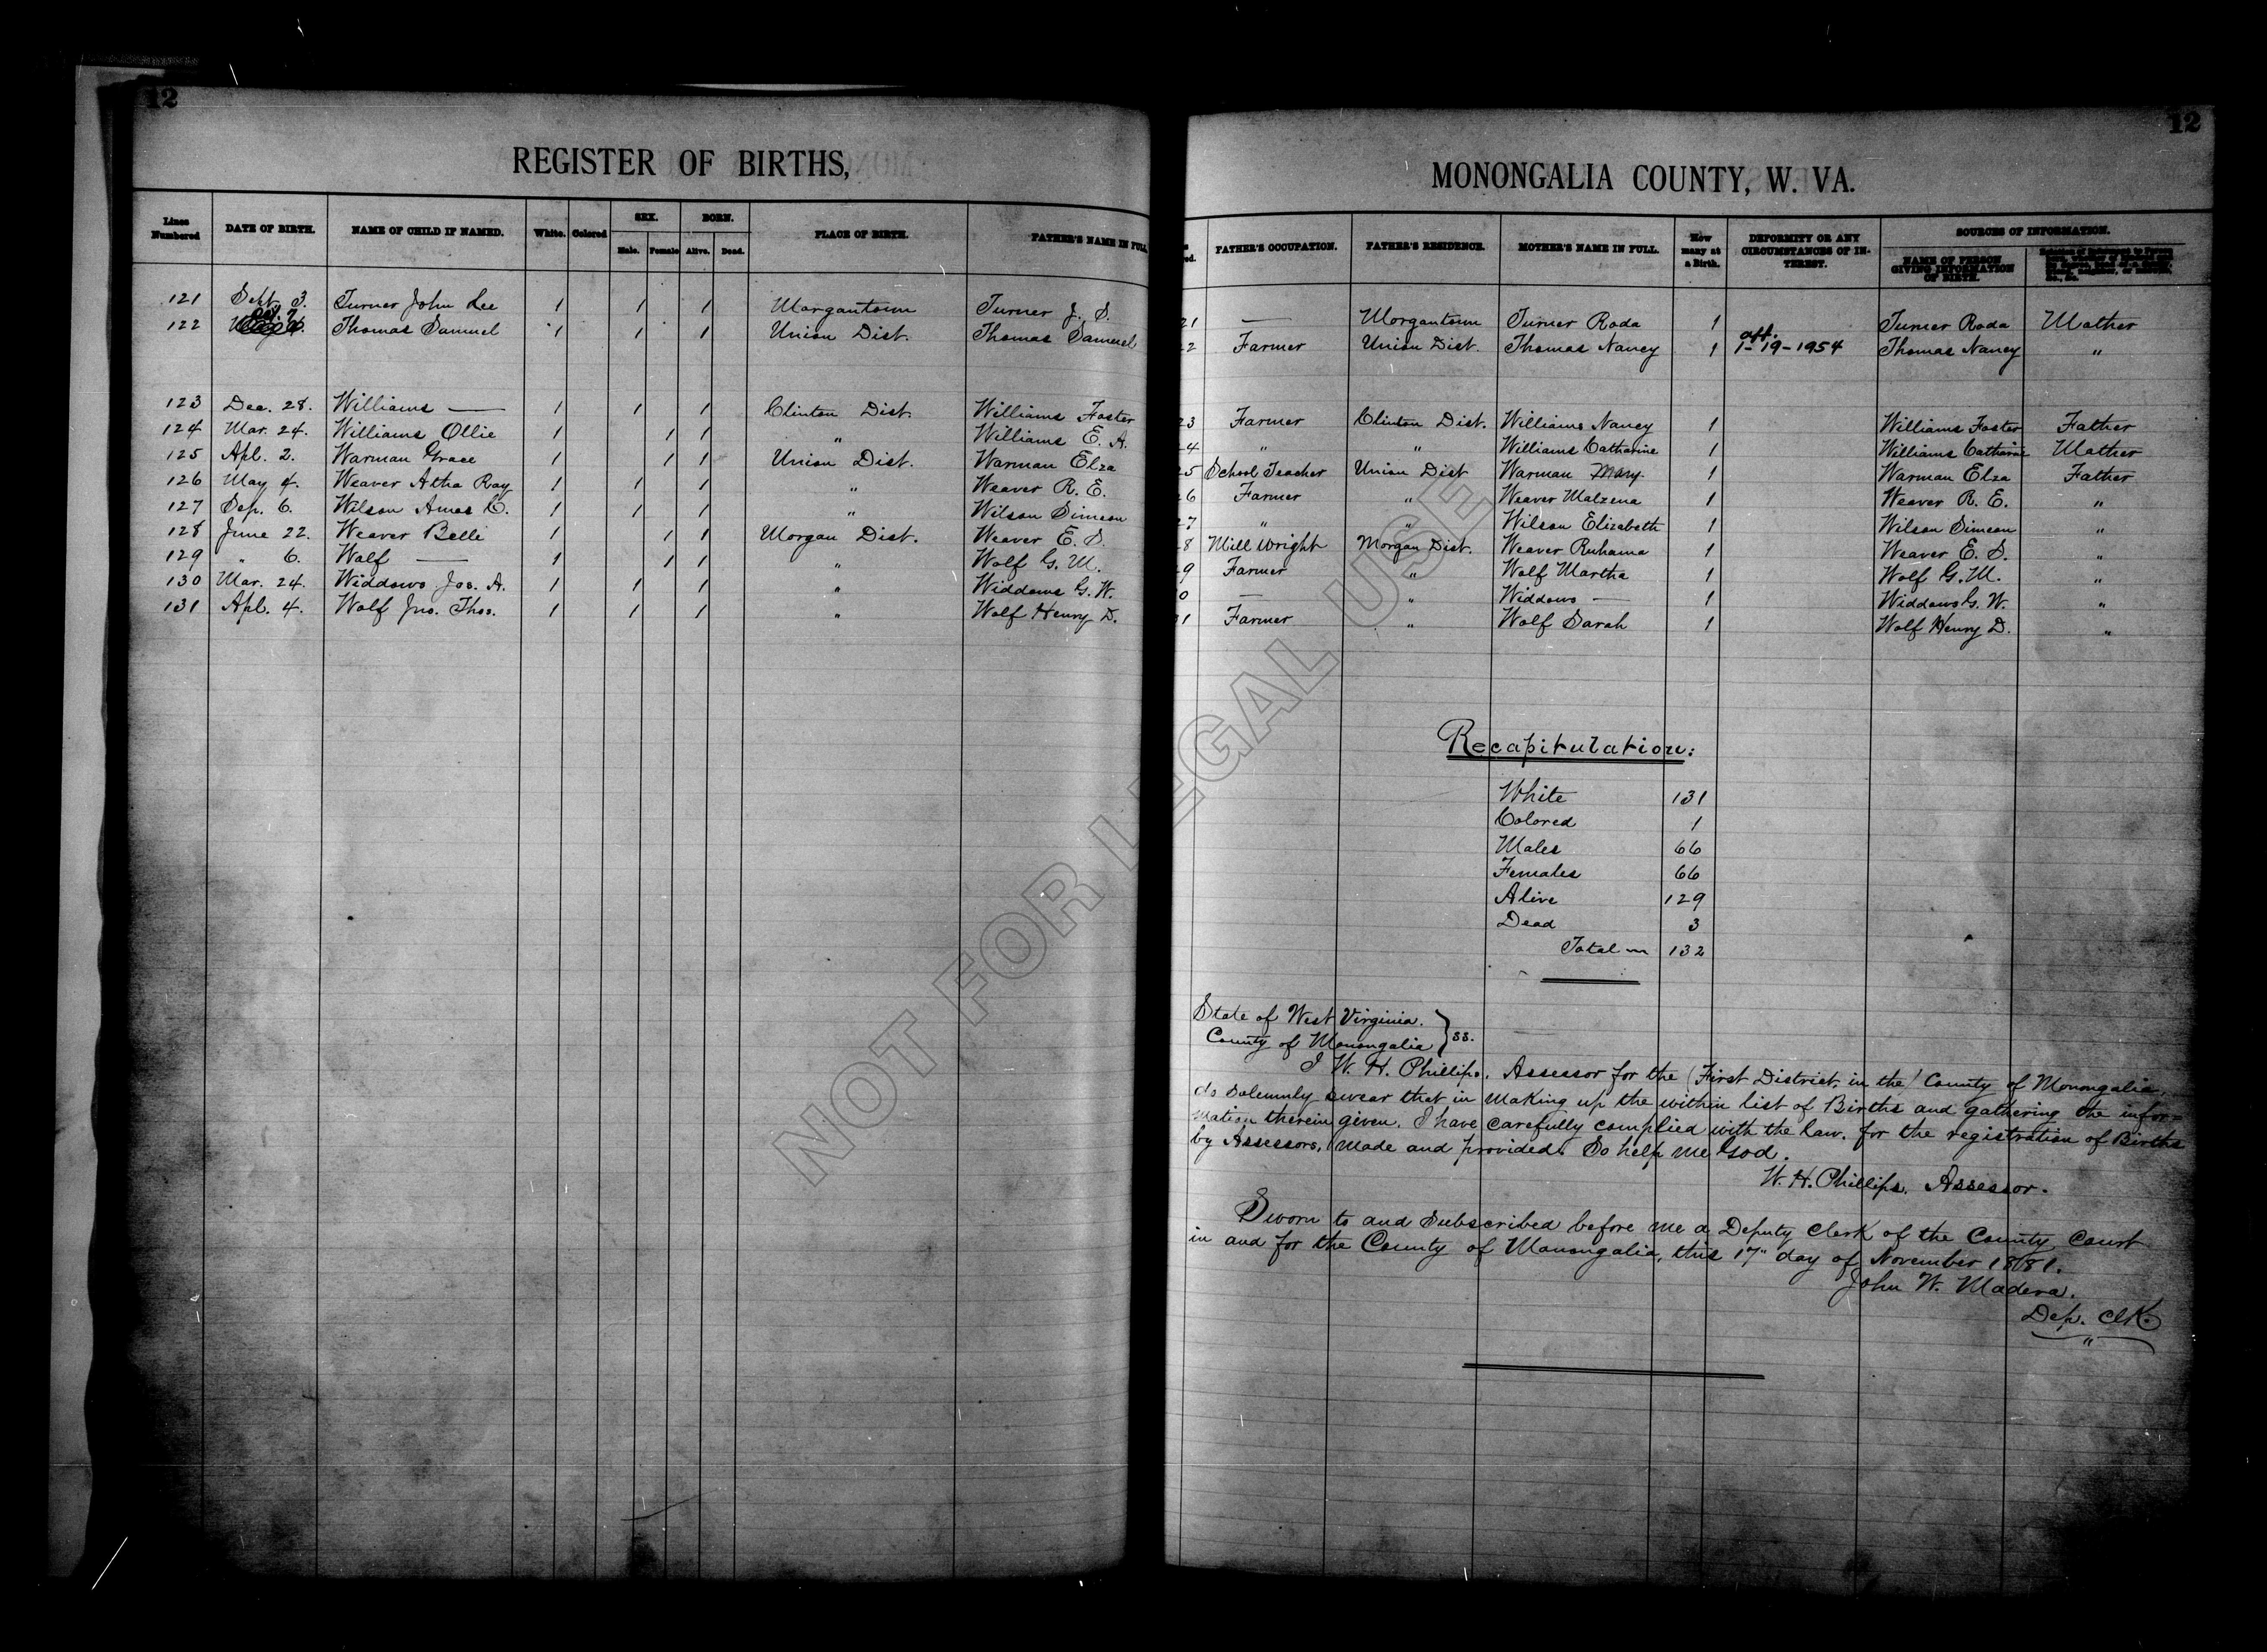 12
REGISTER OF BIRTHS,
Lines Numbered DATE OF BIRTH. NAME OF CHILD IF NAMED. White. Colored SEX. Male. Female BORN. Alive. Dead. PLACE OF BIRTH. FATHER'S NAME IN FULL
121 Sept. 3. Turner John Lee 1 1 1 Morgantown Turner J. S.
122 Oct. 7 Thomas Samuel 1 1 1 Union Dist. Thomas Samuel
123 Dec. 28. Williams — 1 1 1 Clinton Dist. Williams Foster
124 Mar. 24. Williams Ollie 1 1 1 " Williams E. A.
125 Apl. 2. Warman Grace 1 1 1 Union Dist. Warman Elza
126 May 4. Weaver Atha Ray 1 1 1 " Weaver R. E.
127 Sep. 6. Wilson Amos C. 1 1 1 " Wilson Simeon
128 June 22. Weaver Belle 1 1 1 Morgan Dist. Weaver E. S.
129 " 6. Wolf — 1 1 1 " Wolf G. M.
130 Mar. 24. Widdows Jos. A. 1 1 1 " Widdows G. W.
131 Apl. 4. Wolf Jno. Thos. 1 1 1 " Wolf Henry D.
12
MONONGALIA COUNTY, W. VA.
FATHER'S OCCUPATION. FATHER'S RESIDENCE. MOTHER'S NAME IN FULL. How many at a Birth. DEFORMITY OR ANY CIRCUMSTANCES OF INTEREST. SOURCES OF INFORMATION. NAME OF PERSON GIVING INFORMATION OF BIRTH.
21 — Morgantown Turner Roda 1 Turner Roda Mother
2 Farmer Union Dist. Thomas Nancy 1 aff. 1-19-1954 Thomas Nancy "
23 Farmer Clinton Dist. Williams Nancy 1 Williams Foster Father
4 " " Williams Catharine 1 Williams Catharine Mother
5 School Teacher Union Dist Warman Mary. 1 Warman Elza Father
6 Farmer " Weaver Malzena 1 Weaver R. E. "
7 " " Wilson Elizabeth 1 Wilson Simeon "
8 Mill Wright Morgan Dist. Weaver Ruhama 1 Weaver E. S. "
9 Farmer " Wolf Martha 1 Wolf G. M. "
0 — " Widdows — 1 Widdows G. W. "
1 Farmer " Wolf Sarah 1 Wolf Henry D. "
Recapitulation:
White 131
Colored 1
Males 66
Females 66
Alive 129
Dead 3
Total 132
State of West Virginia.
County of Monongalia } ss.
I W. H. Phillips, Assessor for the First District, in the County of Monongalia,
do solemnly swear that in making up the within list of Births and gathering the infor-
mation therein given, I have carefully complied with the law, for the registration of Births
by Assessors, made and provided. So help me God.
W. H. Phillips, Assessor.
Sworn to and Subscribed before me a Deputy Clerk of the County Court
in and for the County of Monongalia, this 17" day of November 1881.
John W. Madera.
Dep. Clk.
NOT FOR LEGAL USE